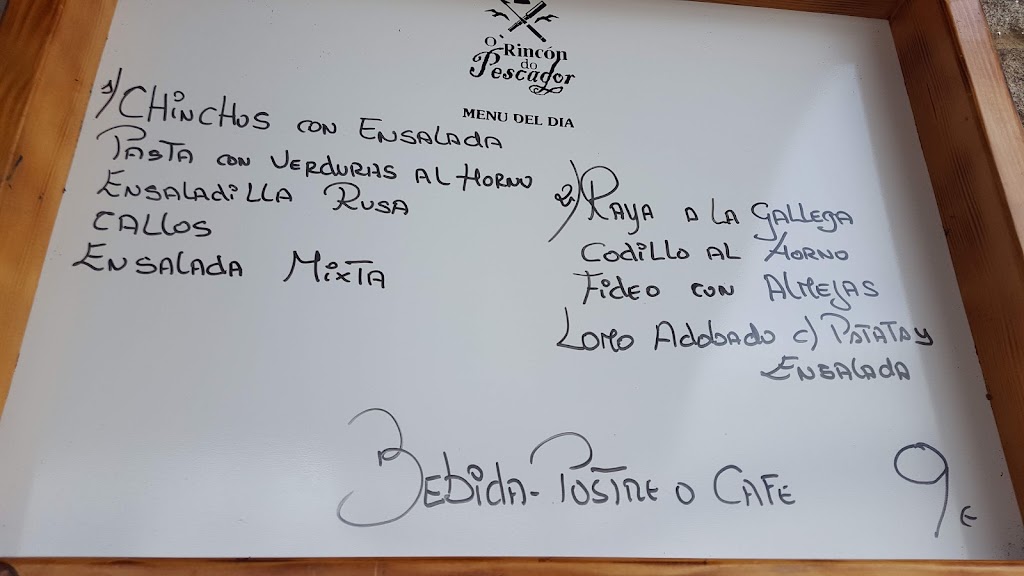 O' Rincón
do
Pescador
MENU DEL DIA
1) CHINCHOS CON ENSALADA
PASTA CON VERDURAS AL HORNO
ENSALADILLA RUSA
CALLOS
ENSALADA MIXTA
2) RAYA A LA GALLEGA
CODILLO AL HORNO
FIDEO CON ALMEJAS
LOMO ADOBADO C) PATATA y
ENSALADA
BEBIDA-POSTRE O CAFE
9 €